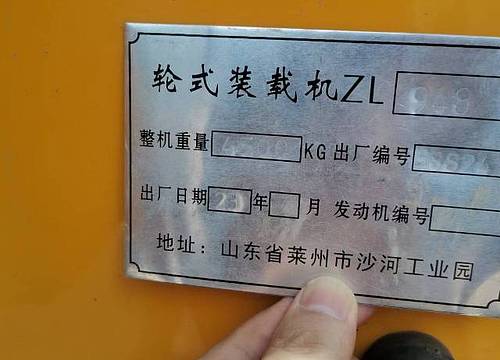 轮式装载机ZL 948
整机重量 4500 KG 出厂编号
出厂日期 23 年 月 发动机编号
地址：山东省莱州市沙河工业园